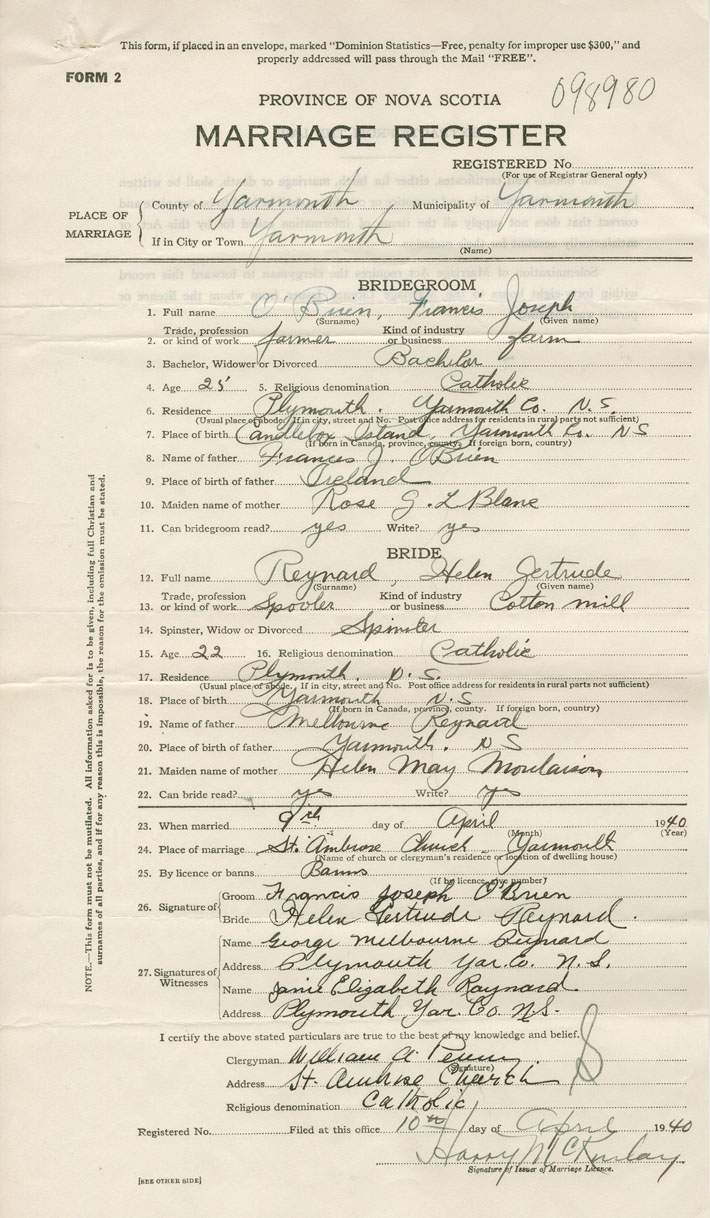 This form, if placed in an envelope, marked "Dominion Statistics—Free, penalty for improper use $300," and
properly addressed will pass through the Mail "FREE".
FORM 2
098980
PROVINCE OF NOVA SCOTIA
MARRIAGE REGISTER
REGISTERED No.
(For use of Registrar General only)
PLACE OF MARRIAGE
County of Yarmouth Municipality of Yarmouth
If in City or Town Yarmouth
(Name)
BRIDEGROOM
1. Full name O'Brien, Francis Joseph
(Surname) (Given name)
Trade, profession Kind of industry
2. or kind of work farmer or business farm
3. Bachelor, Widower or Divorced Bachelor
4. Age 25 5. Religious denomination Catholic
6. Residence Plymouth. Yarmouth Co. N.S.
(Usual place of abode. If in city, street and No. Post office address for residents in rural parts not sufficient)
7. Place of birth Candlebox Island, Yarmouth Co. NS
(If born in Canada, province, county. If foreign born, country)
8. Name of father Frances J. O'Brien
9. Place of birth of father Ireland
10. Maiden name of mother Rose G. L Blanc
11. Can bridegroom read? yes Write? yes
BRIDE
12. Full name Reynard, Helen Gertrude
(Surname) (Given name)
Trade, profession Kind of industry
13. or kind of work Spooler or business Cotton mill
14. Spinster, Widow or Divorced Spinster
15. Age 22 16. Religious denomination Catholic
17. Residence Plymouth. N.S.
(Usual place of abode. If in city, street and No. Post office address for residents in rural parts not sufficient)
18. Place of birth Yarmouth N.S
(If born in Canada, province, county. If foreign born, country)
19. Name of father Melbourne Reynard
20. Place of birth of father Yarmouth. NS
21. Maiden name of mother Helen May Moulaison
22. Can bride read? yes Write? yes
23. When married 9th day of April 1940
(Month) (Year)
24. Place of marriage St. Ambrose Church - Yarmouth
(Name of church or clergyman's residence or location of dwelling house)
25. By licence or banns Banns
(If by licence, give number)
26. Signature of
Groom Francis Joseph O'Brien
Bride Helen Gertrude Raynard.
27. Signatures of Witnesses
Name George Melbourne Raynard
Address Plymouth Yar. Co. N.S.
Name Janie Elizabeth Raynard
Address Plymouth Yar. Co NS.
I certify the above stated particulars are true to the best of my knowledge and belief.
Clergyman William A. Penny
(Signature)
Address St. Ambrose Church
Religious denomination Catholic
Registered No. Filed at this office 10th day of April 1940
Harry McKinlay
Signature of Issuer of Marriage Licence.
[SEE OTHER SIDE]
NOTE.—This form must not be mutilated. All information asked for is to be given, including full Christian and
surnames of all parties, and if for any reason this is impossible, the reason for the omission must be stated.